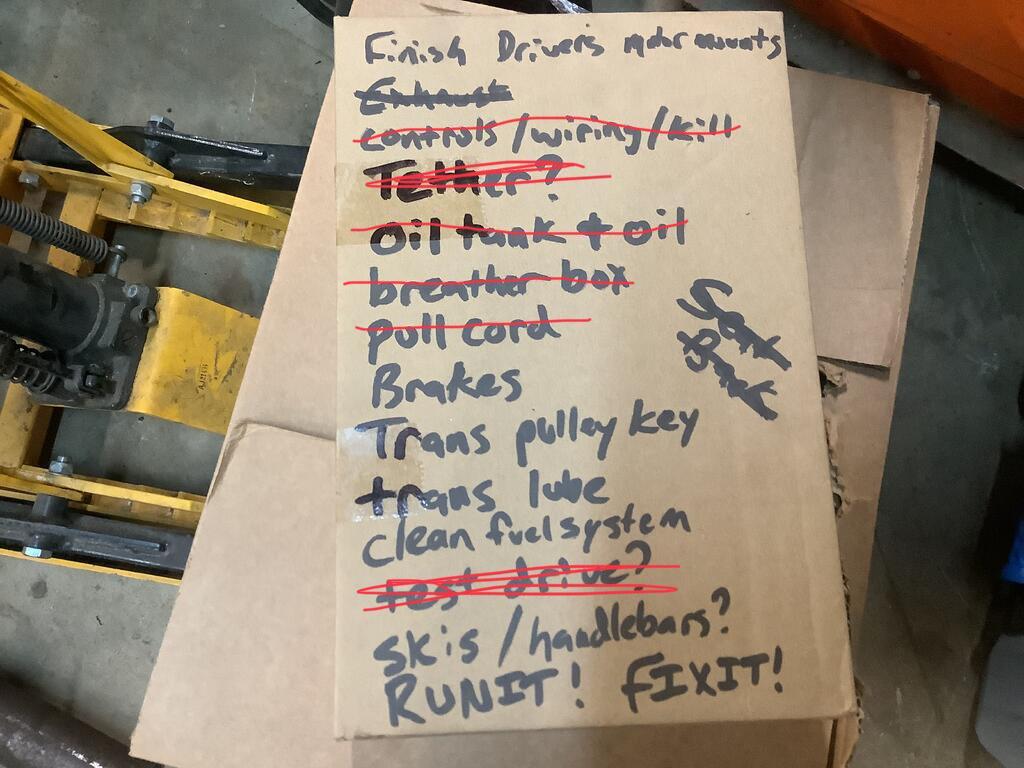 Finish Drivers motor mounts
Exhaust
controls/wiring/kill
Tether?
Oil tank & oil
breather box
pull cord
Brakes
Trans pulley key
trans lube
clean fuel system
test drive?
skis/handlebars?
RUNIT! FIXIT!